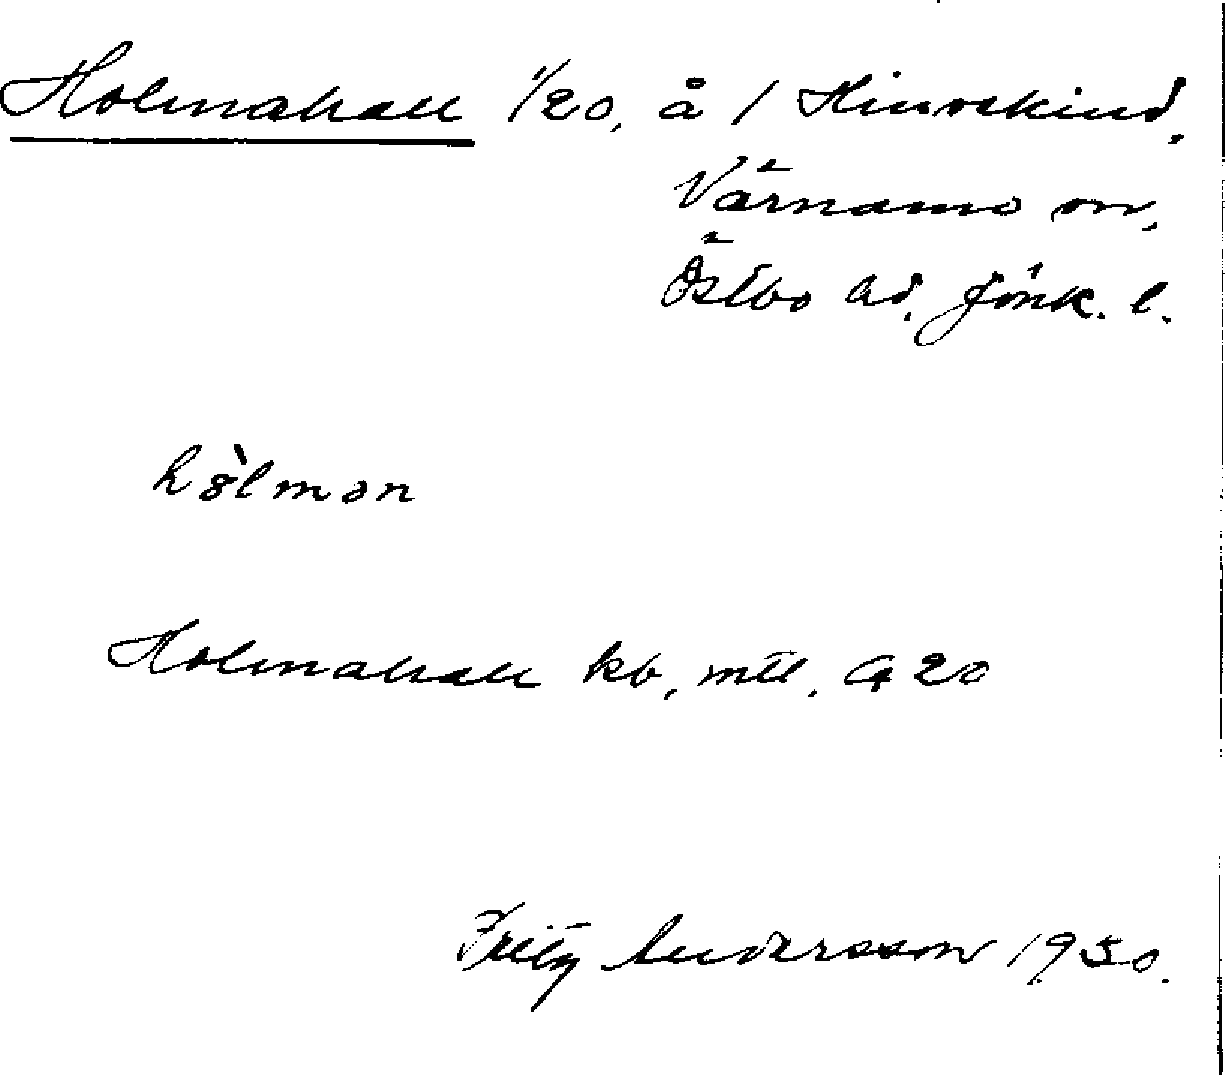 Holmahall 1/20, å 1 Hindsekind,
Värnamo sn,
Östbo hd, Jönk. l.
hòlmən
Holmahall kb, mtl. 0,20
Fritz Andersson 1930.